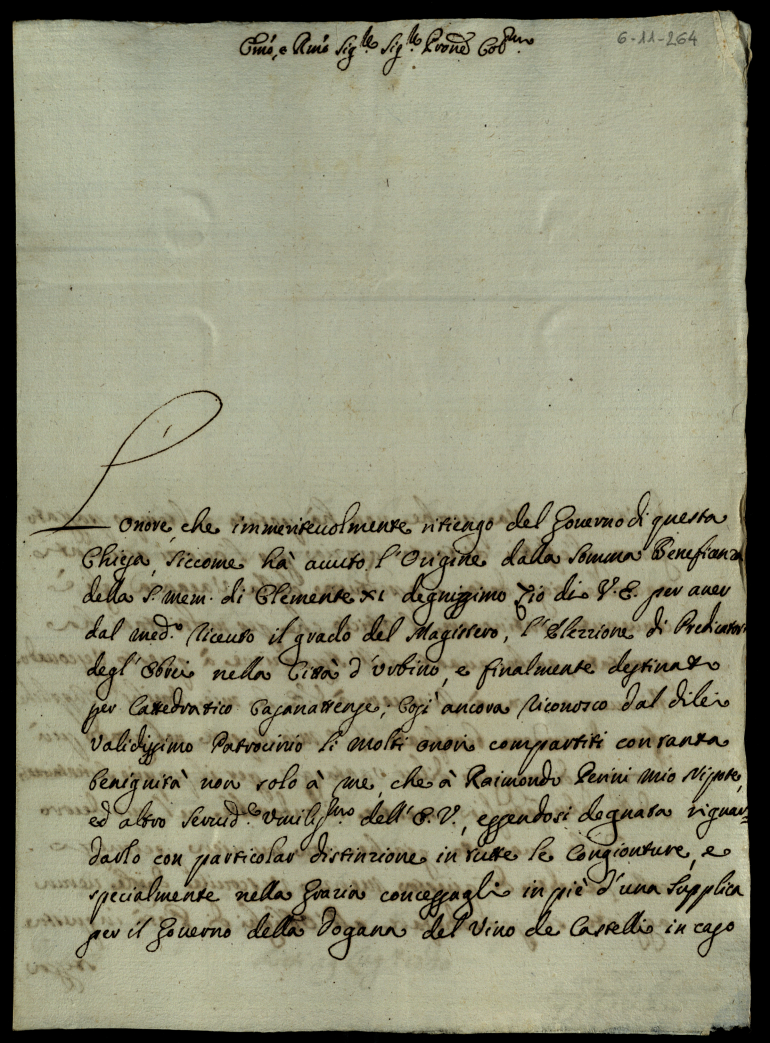 Emo, e Rmo Sig.re Sig.re Prone Col.mo
6-11-264
L'onore, che immeritevolmente ritengo del Governo di questa
Chiesa, siccome hà avuto l'Origine dalla Somma Beneficenza
della S. mem. di Clemente XI degnissimo Zio di V. E. per aver
dal med.o ricevuto il grado del Magistero, l'Elezzione di Predicator
degl'Ebrei nella Città d'Urbino, e finalmente destinato
per Cattedratico; Così ancora riconosco dal di lei
validissimo Patrocinio li molti onori compartiti con tanta
benignità non solo à me, che à Raimondo Perini mio Nipote,
ed altro Servid.e Umiliss.mo dell'E. V., essendosi degnata riguar=
darlo con particolar distinzione in tutte le Congionture, e
specialmente nella Grazia concessagli in piè d'una Supplica
per il Governo della Dogana del Vino de Castelli in caso